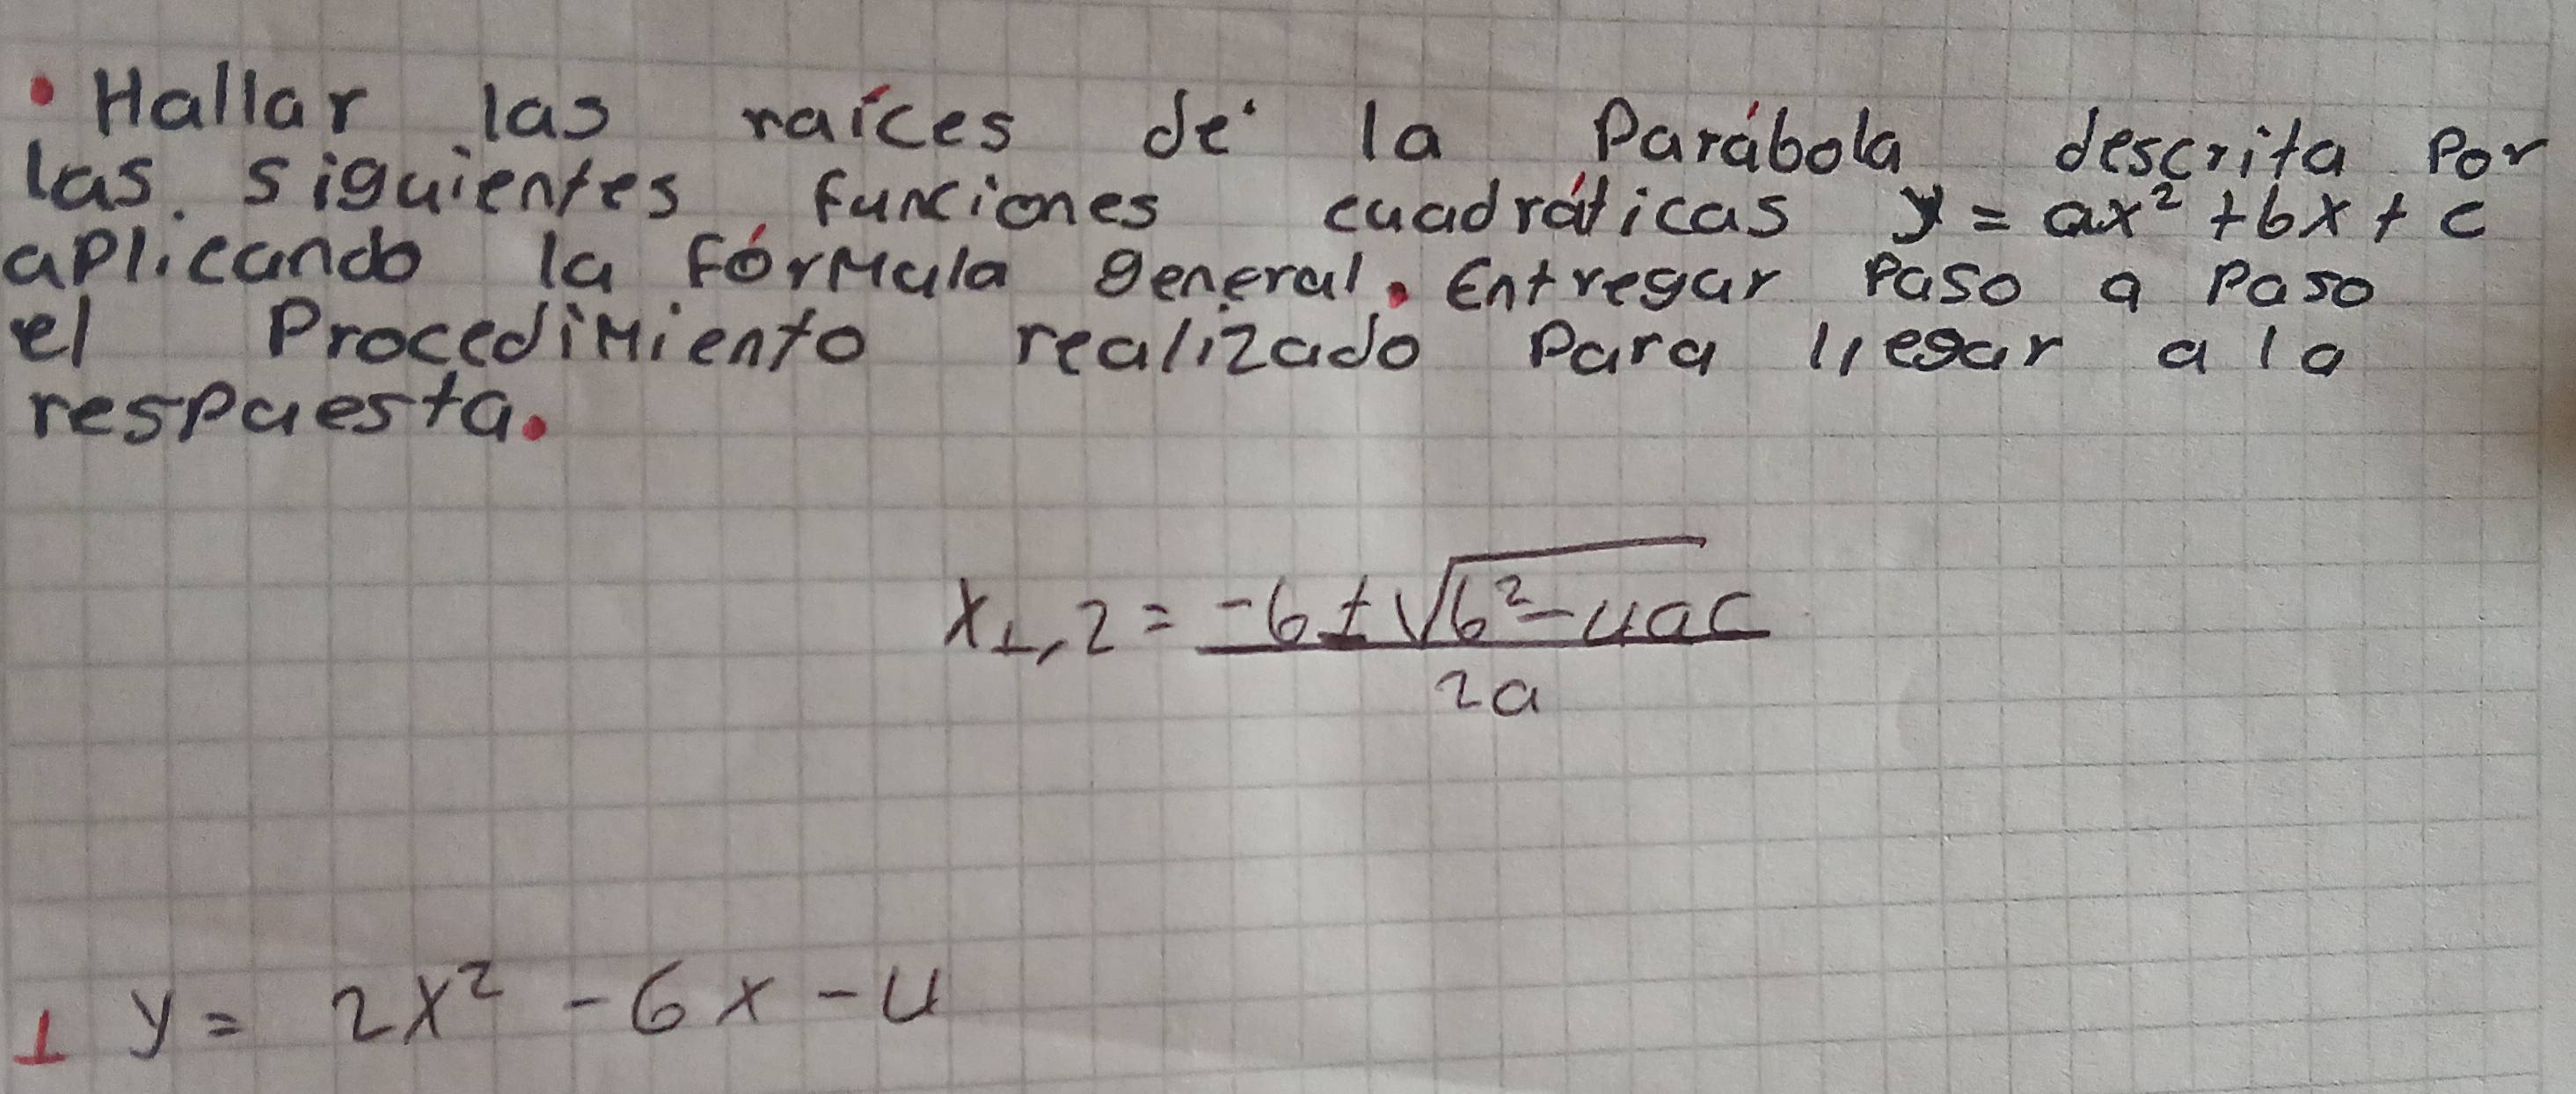 • Hallar las raíces de la Parábola descrita Por
las siguientes funciones cuadráticas y = ax² + bx + c
aplicando la fórmula general. Entregar Paso a Paso
el Procedimiento realizado Para llegar a la
respuesta.
x₁,₂ = (-b ± √(b² - 4ac)) / 2a
1 y = 2x² - 6x - 4